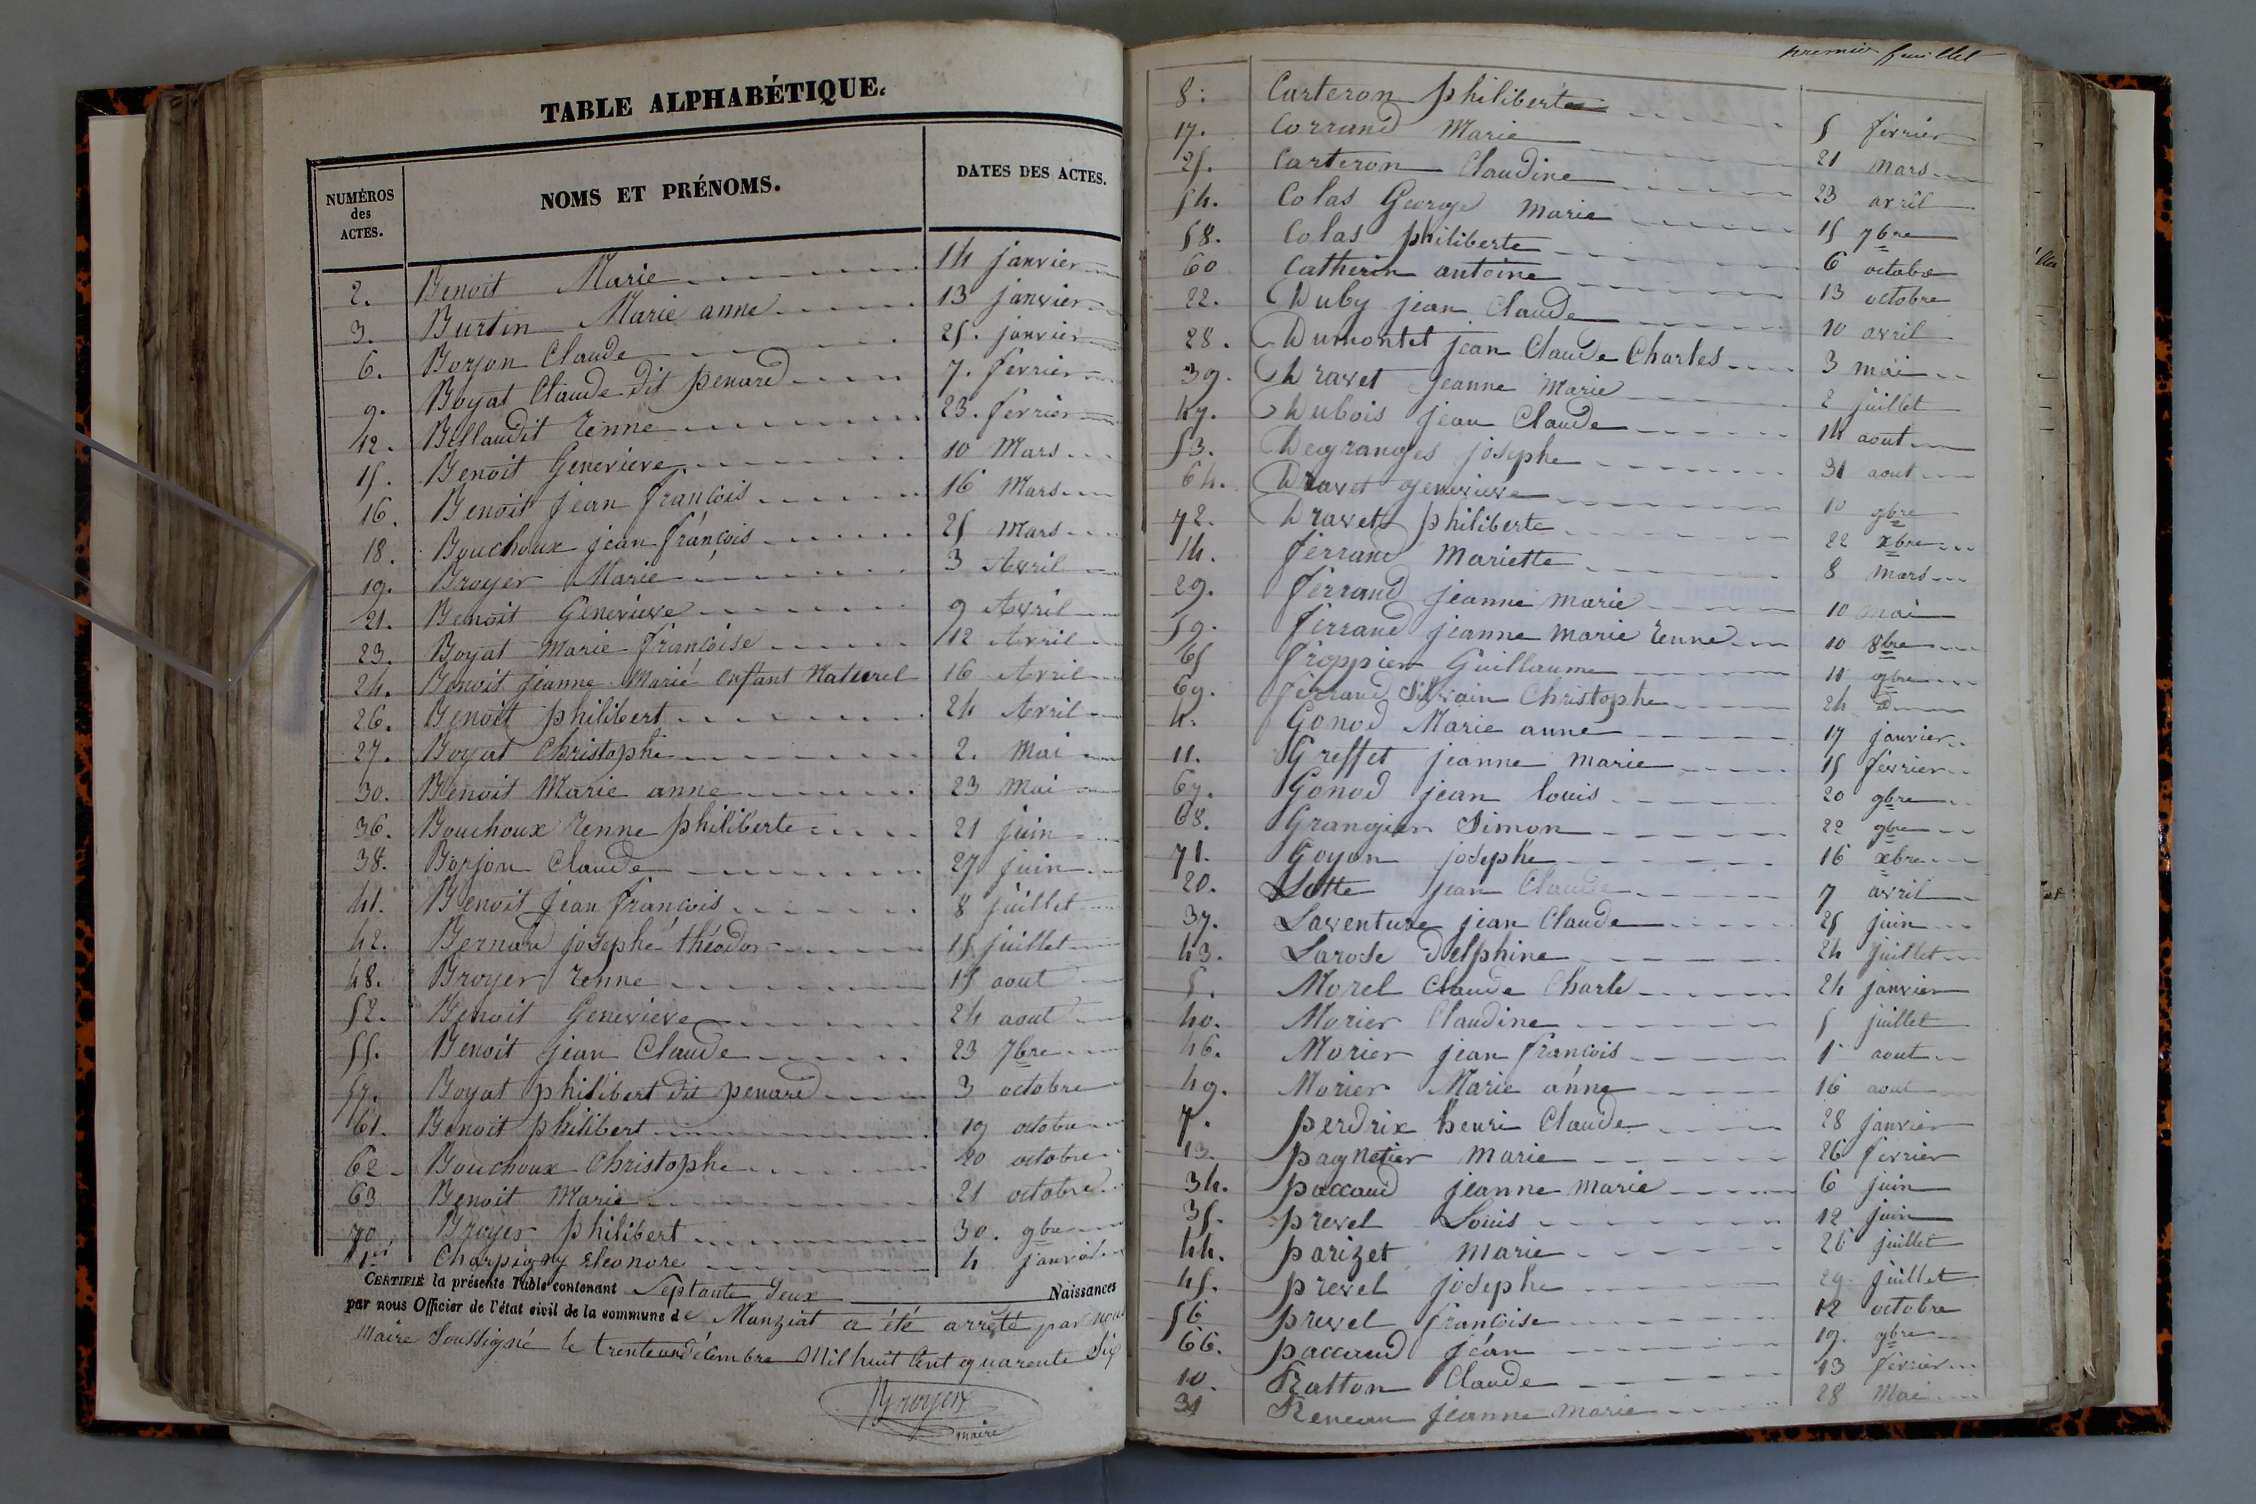 TABLE ALPHABÉTIQUE.
NUMÉROS des ACTES. NOMS ET PRÉNOMS. DATES DES ACTES.
2. Benoit Marie 14 janvier
3. Burtin Marie anne 13 janvier
6. Borjon Claude 25. janvier
9. Boyat Claude dit penard 7. fevrier
12. Billaudit renne 23. fevrier
15. Benoit Genevieve 10 Mars
16. Benoit jean françois 16 Mars
18. Bouchoux jean françois 25 mars
19. Broyer Marie 3 Avril
21. Benoit Genevieve 9 Avril
23. Boyat Marie françoise 12 Avril
24. Benoit jeanne Marie enfant Naturel 16 Avril
26. Benoit philibert 24 Avril
27. Boyat Christophe 2. mai
30. Benoit Marie anne 23 mai
36. Bouchoux renne philiberte 21 juin
38. Borjon Claude 27 juin
41. Benoit jean françois 8 juillet
42. Bernard josephe théodor 15 juillet
48. Broyer renne 15 aout
52. Benoit Genevieve 24 aout
55. Benoit jean Claude 23 7bre
57. Boyat philibert dit penard 3 octobre
61. Benoit philibert 19 octobre
62 Bouchoux Christophe 20 octobre
63 Benoit Marie 21 octobre
70. Broyer philibert 30. 9bre
1er Charpigny eleonore 4 janvier
CERTIFIÉ la présente Table contenant Septante deux Naissances
par nous Officier de l'état civil de la commune de Manziat a été arreté par nous
Maire Soussigné le trente un décembre Mil huit Cent quarente Six
Broyer
maire
premier feuillet
8. Carteron philiberte 5 fevrier
17. Corrand Marie 21 mars
25. Carteron Claudine 23 avril
54. Colas George marie 15 7bre
58. Colas philiberte 6 octobre
60 Catherin antoine 13 octobre
22. Duby jean Claude 10 avril
28. Dumontet jean Claude Charles 3 mai
39. Dravet jeanne Marie 2 juillet
47. Dubois jean Claude 14 aout
53. Degranges josephe 31 aout
64. Dravet genevieve 10 9bre
72. Dravet philiberte 22 xbre
14. ferrand Mariette 8 mars
29. ferrand jeanne marie 10 mai
59. ferrand jeanne marie renne 10 8bre
65 froppier Guillaume 11 9bre
69. ferrand Silvain Christophe 24 d
4. Gonod Marie anne 17 janvier
11. Greffet jeanne marie 15 fevrier
67. Gonod jean louis 20 9bre
68. Grangier Simon 22 9bre
71. Goyon josephe 16 xbre
20. Lotte jean Claude 7 avril
37. Laventure jean Claude 25 juin
43. Larose delphine 24 juillet
5. Morel Claude Charle 24 janvier
40. Morier Claudine 5 juillet
46. Morier jean françois 1 aout
49. Morier Marie anne 16 aout
7. perdrix henri Claude 28 janvier
13. pagnetier marie 26 fevrier
34. paccaud jeanne marie 6 juin
35. prevel Louis 12 juin
44. parizet marie 26 juillet
45. prevel josephe 29 juillet
56 prevel françoise 12 octobre
66. paccaud jean 19. 9bre
10. Ratton Claude 13 fevrier
31 Reneau jeanne marie 28 Mai